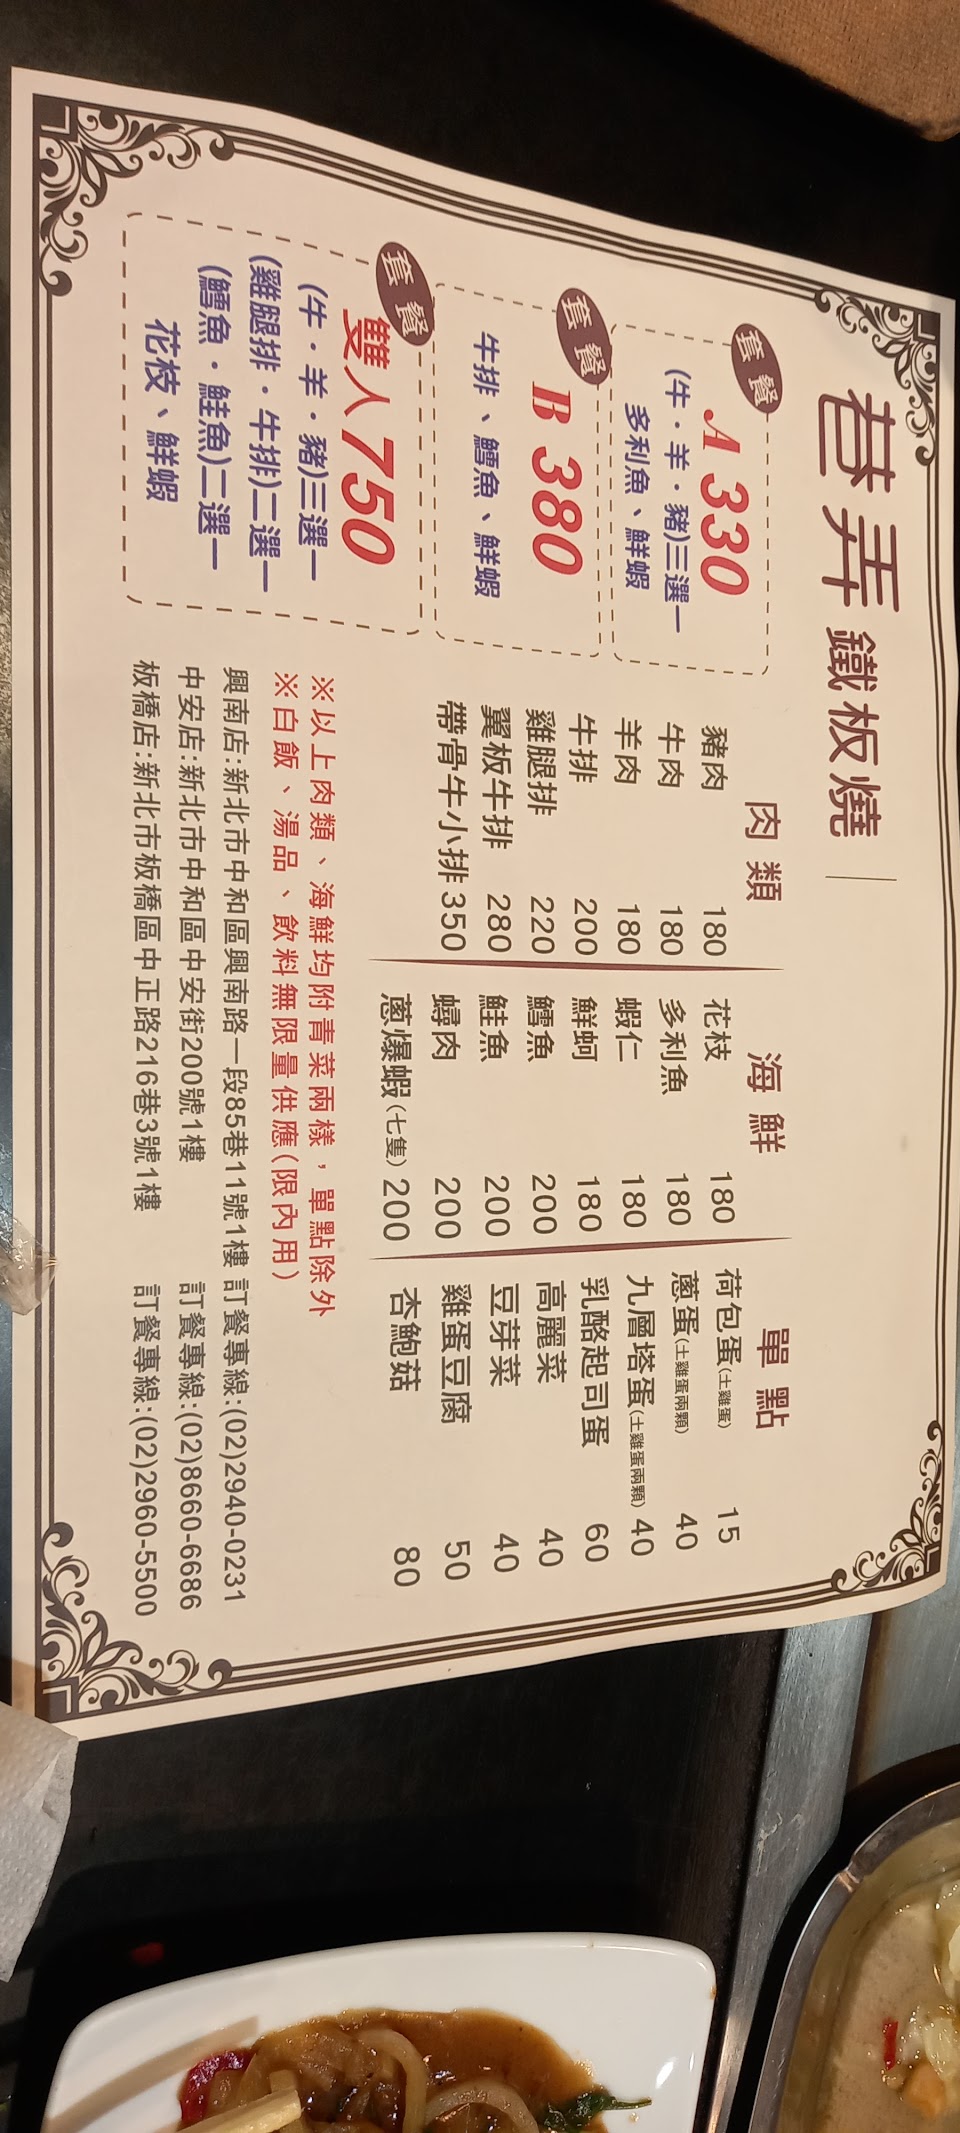 巷弄鐵板燒
套餐
A 330
(牛·羊·豬)三選一
多利魚、鮮蝦
套餐
B 380
牛排、鱈魚、鮮蝦
套餐
雙人750
(牛·羊·豬)三選一
(雞腿排·牛排)二選一
(鱈魚·鮭魚)二選一
花枝、鮮蝦
肉類
豬肉 180
牛肉 180
羊肉 180
牛排 200
雞腿排 220
翼板牛排 280
帶骨牛小排 350
海鮮
花枝 180
多利魚 180
蝦仁 180
鮮蚵 180
鱈魚 200
鮭魚 200
蟳肉 200
蔥爆蝦(七隻) 200
單點
荷包蛋(土雞蛋) 15
蔥蛋(土雞蛋兩顆) 40
九層塔蛋(土雞蛋兩顆) 40
乳酪起司蛋 60
高麗菜 40
豆芽菜 40
雞蛋豆腐 50
杏鮑菇 80
※以上肉類、海鮮均附青菜兩樣，單點除外
※白飯、湯品、飲料無限量供應(限內用)
興南店:新北市中和區興南路一段85巷11號1樓 訂餐專線:(02)2940-0231
中安店:新北市中和區中安街200號1樓 訂餐專線:(02)8660-6686
板橋店:新北市板橋區中正路216巷3號1樓 訂餐專線:(02)2960-5500